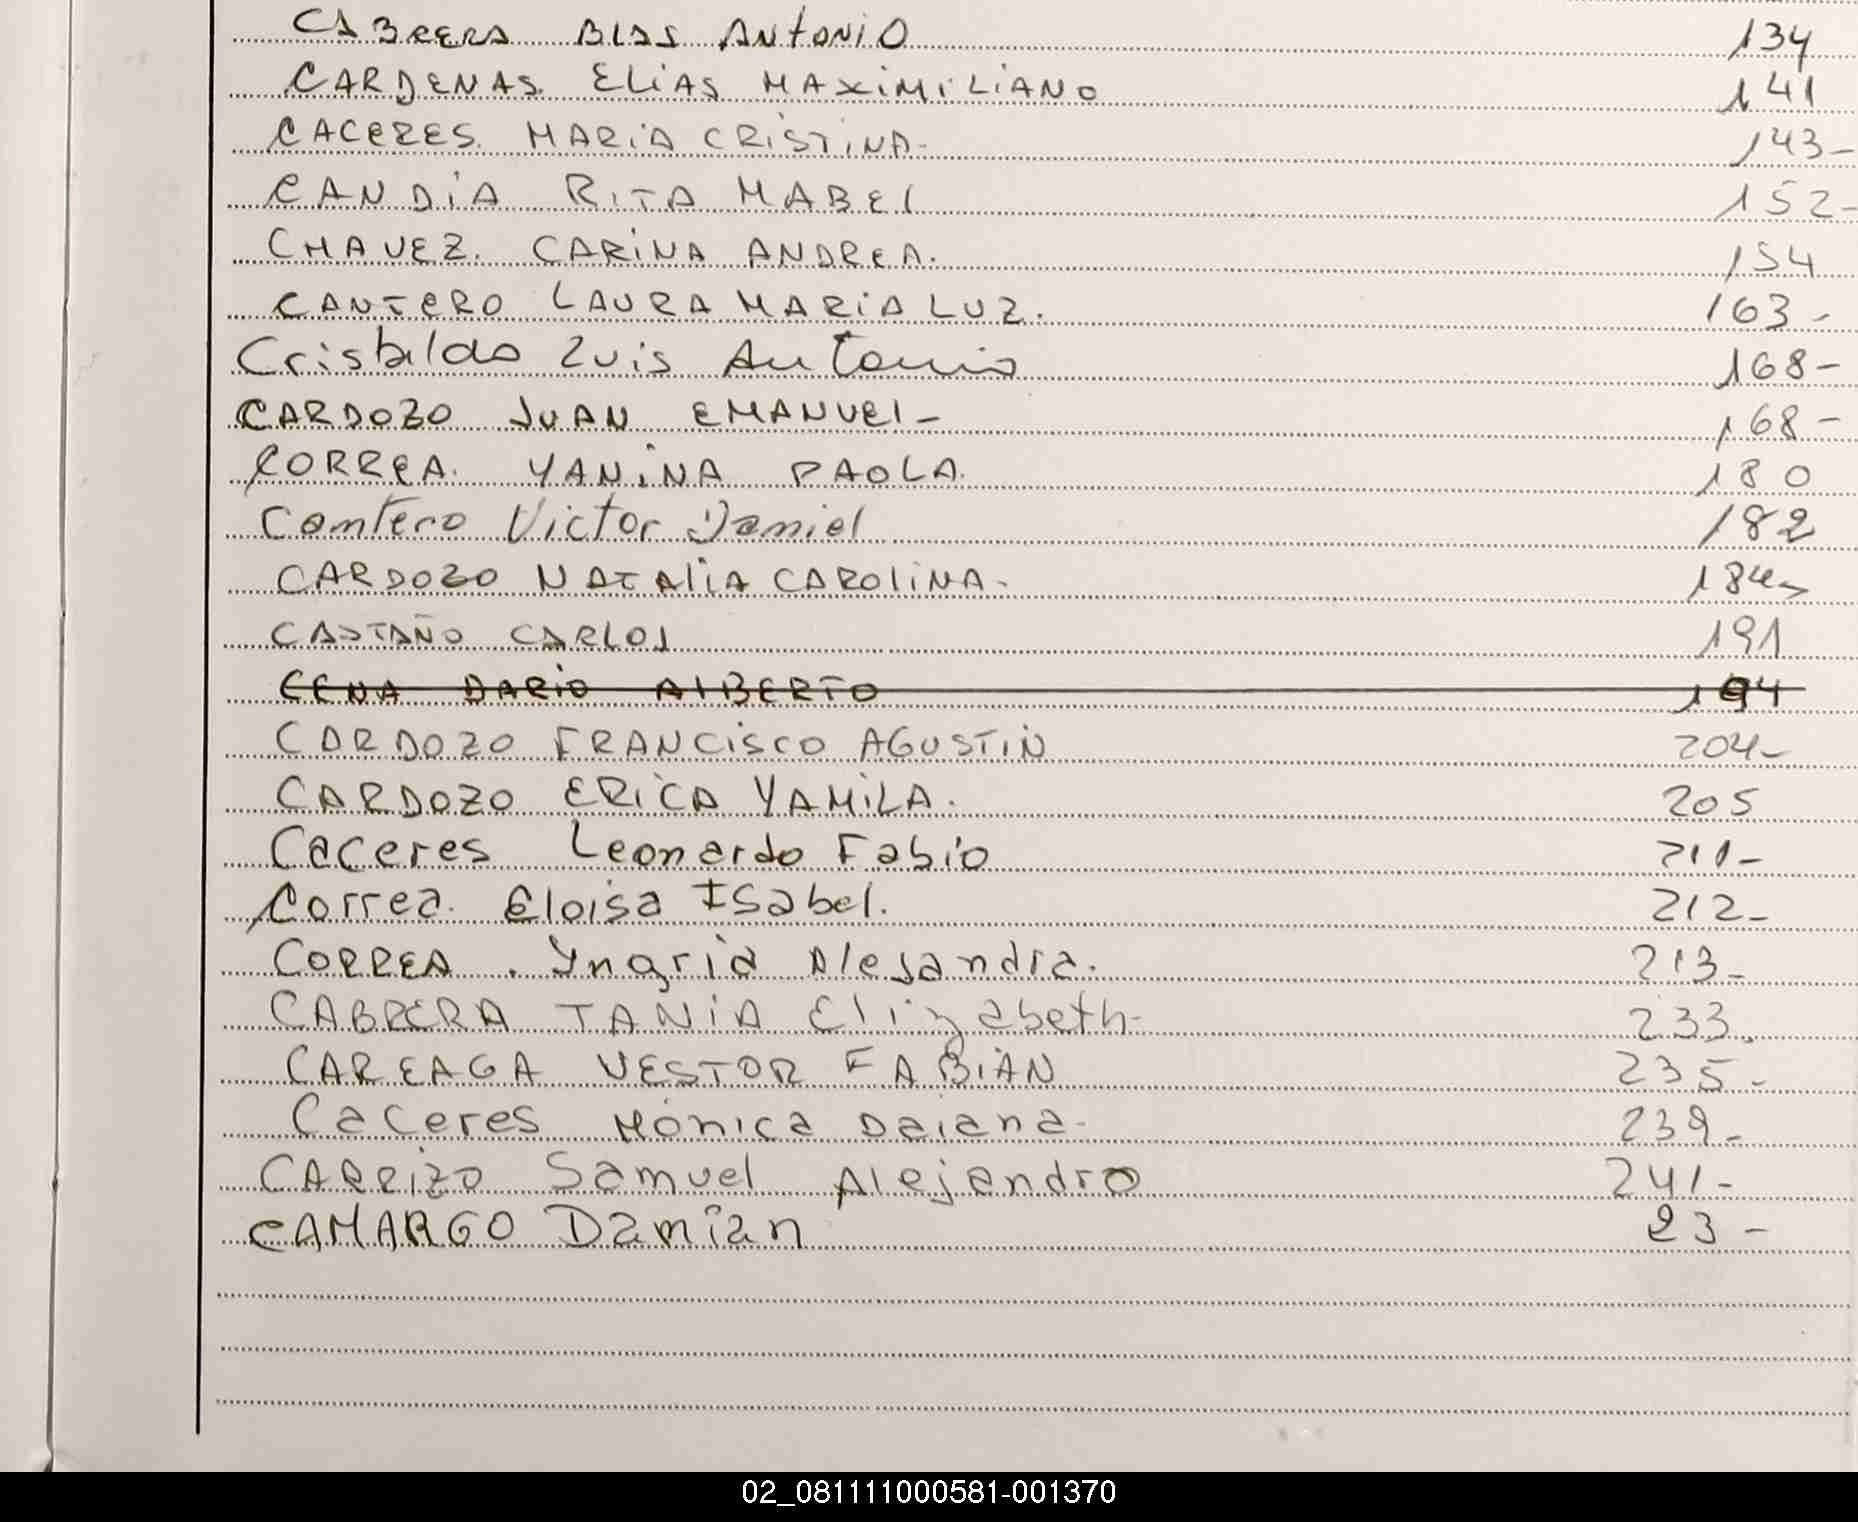 CABRERA BLAS ANTONIO 134
CARDENAS ELIAS MAXIMILIANO 141
CACERES MARIA CRISTINA- 143-
CANDIA RITA MABEL 152-
CHAVEZ. CARINA ANDREA. 154
CANTERO LAURA MARIA LUZ. 163-
Cristaldo Luis Antonio 168-
CARDOZO JUAN EMANUEL- 168-
CORREA. YANINA PAOLA. 180
Cantero Victor Daniel 182
CARDOZO NATALIA CAROLINA- 184-
CASTAÑO CARLOS 191
CENA DARIO ALBERTO 194
CARDOZO FRANCISCO AGUSTIN 204-
CARDOZO ERICA YAMILA. 205
Caceres Leonardo Fabio 211-
Correa. Eloisa Isabel. 212-
CORREA. Yngrid Alejandra. 213-
CABRERA TANIA Elizabeth- 233.
CAREAGA NESTOR FABIAN 235-
Caceres Mónica Daiana- 239-
CARRIZO Samuel Alejandro 241-
CAMARGO Damian 23-
02_081111000581-001370